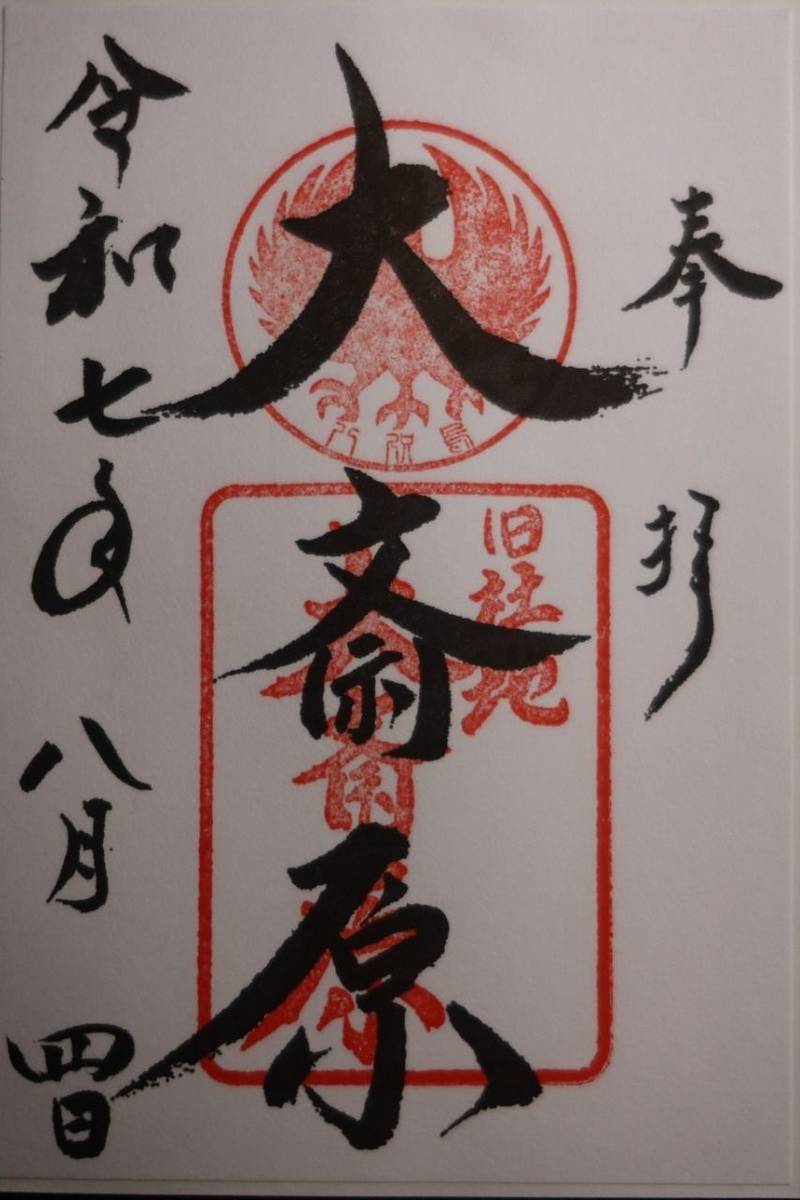 奉拝
大斎原
旧社地
大斎原
令和七年八月四日